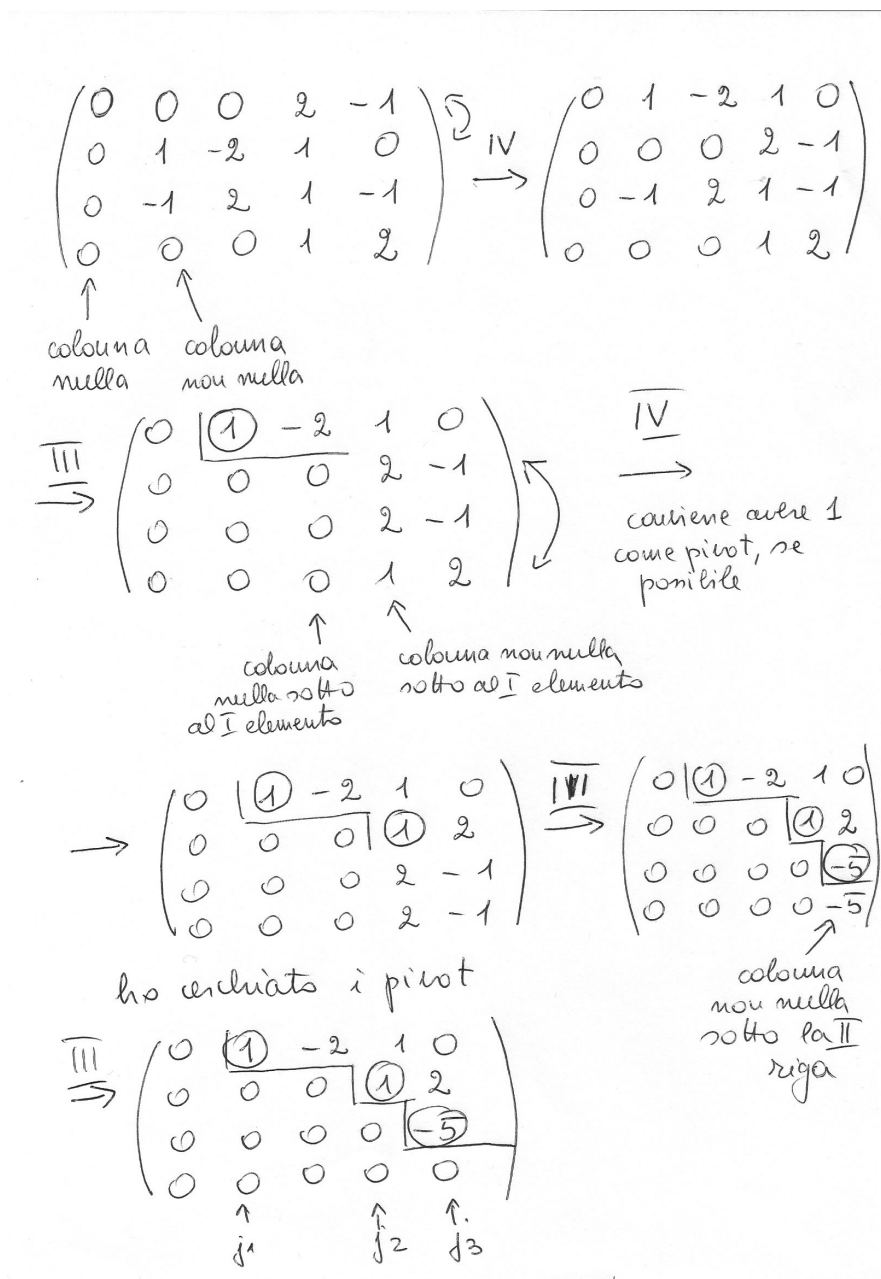 0 0 0 2 -1
0 1 -2 1 0
0 -1 2 1 -1
0 0 0 1 2
IV
→
0 1 -2 1 0
0 0 0 2 -1
0 -1 2 1 -1
0 0 0 1 2
colonna
nulla
colonna
non nulla
III
→
0 1 -2 1 0
0 0 0 2 -1
0 0 0 2 -1
0 0 0 1 2
IV
→
conviene avere 1
come pivot, se
possibile
colonna
nulla sotto
al I elemento
colonna non nulla
sotto al I elemento
→
0 1 -2 1 0
0 0 0 1 2
0 0 0 2 -1
0 0 0 2 -1
III
→
0 1 -2 1 0
0 0 0 1 2
0 0 0 0 -5
0 0 0 0 -5
colonna
non nulla
sotto la II
riga
ho cerchiato i pivot
III
→
0 1 -2 1 0
0 0 0 1 2
0 0 0 0 -5
0 0 0 0 0
j1 j2 j3